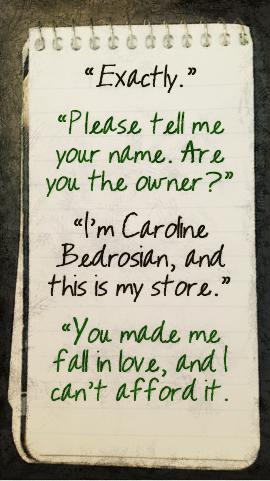 “Exactly.”
“Please tell me
your name. Are
you the owner?”
“I’m Caroline
Bedrosian, and
this is my store.”
“You made me
fall in love, and I
can’t afford it.